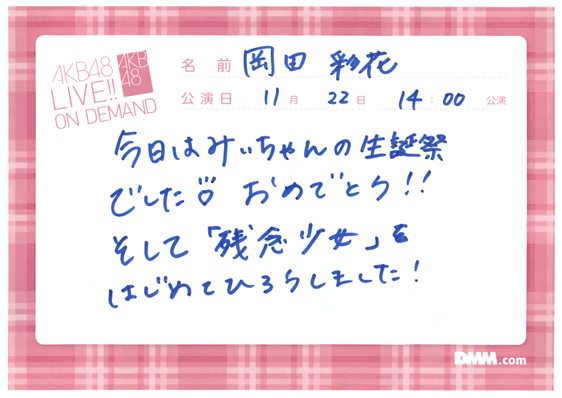 AKB48
LIVE!!
ON DEMAND
AKB
48
名前 岡田 彩花
公演日 11月 22日 14:00 公演
今日はみぃちゃんの生誕祭
でした♡ おめでとう!!
そして「残念少女」を
はじめてひろうしました!
DMM.com